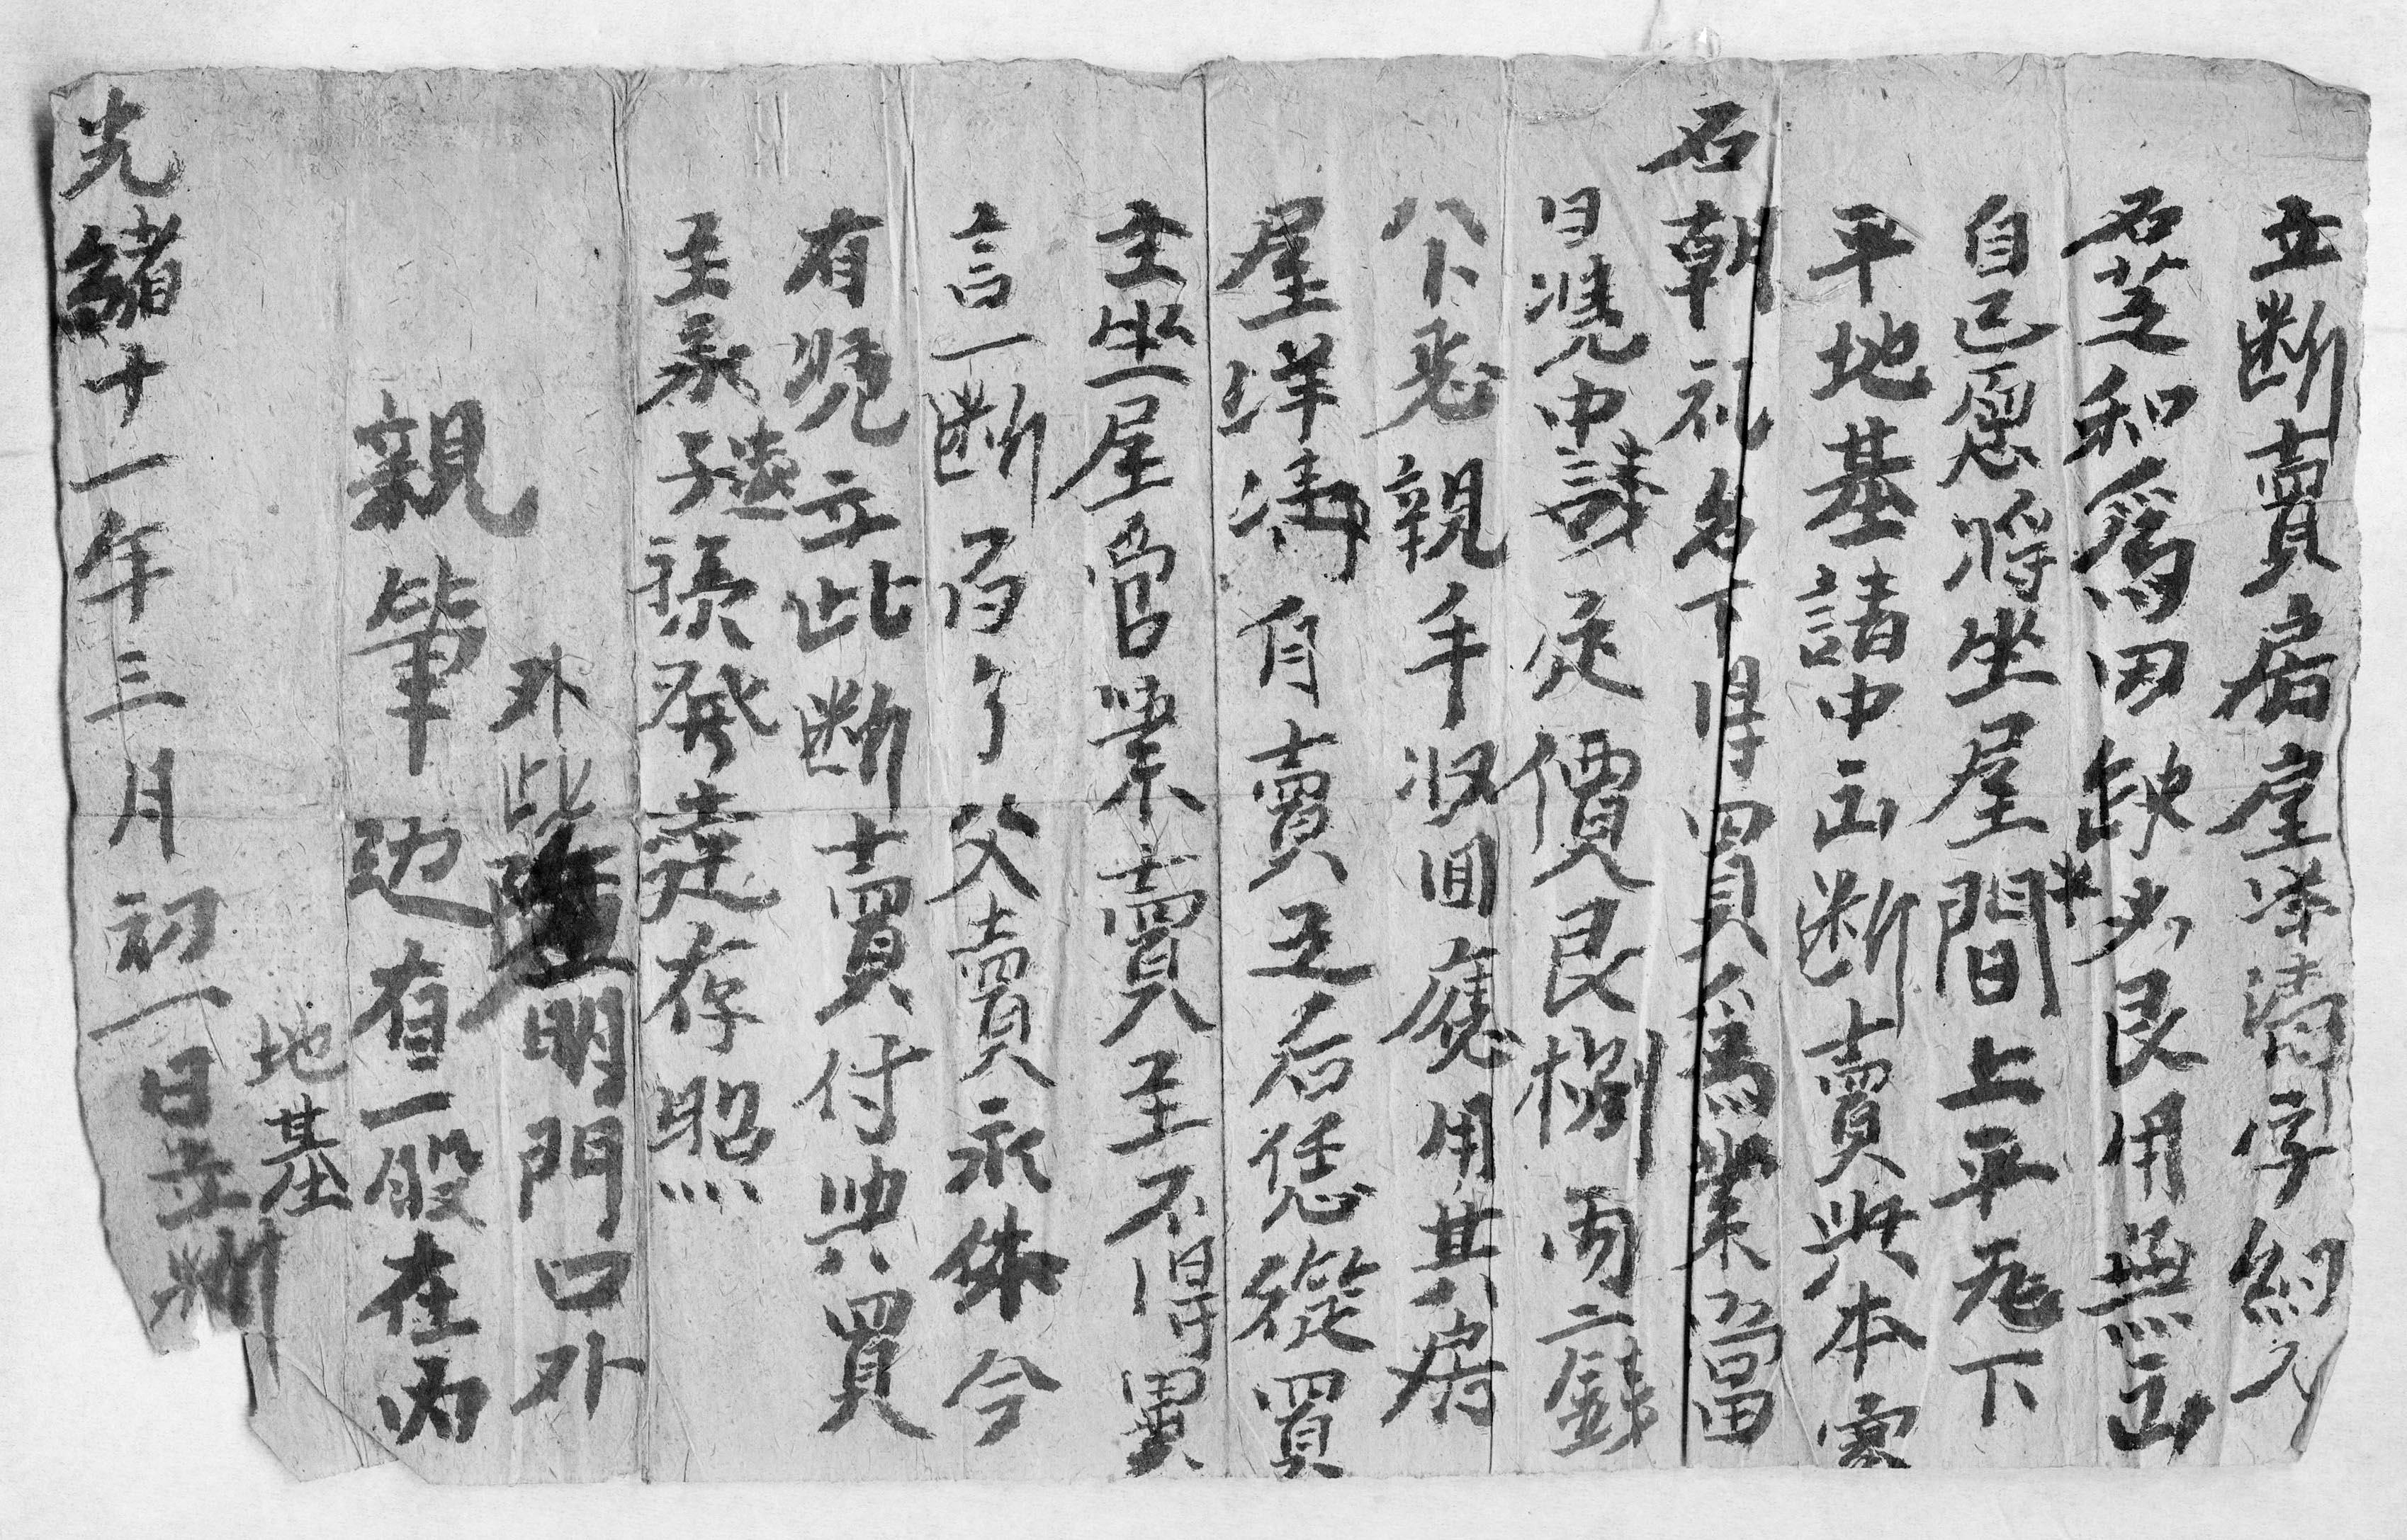 立断賣房屋垟清字約人
石芝和爲因缺少艮用無出
自己愿將坐屋間上平瓦下
平地基請中出断賣與本家
石朝礼名下得買爲業當
日凭中請定價艮捌両二錢
親手収回應用其房
屋垟清自賣之后恁從買
主坐屋管業賣主不得異
言一断百了父賣永休今
有凭立此断賣付與買
主永子孫發達存照
外批明門口外
親筆 边有一股在内
地基
光緒十一年三月初一日立断